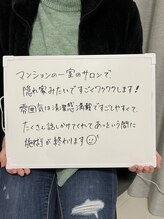 マンションの一室のサロンで、
隠れ家みたいですごくワクワクします!
雰囲気は清潔感満載ですごしやすくて、
たくさん話しかけてくれてあっという間に
施術が終わります☺